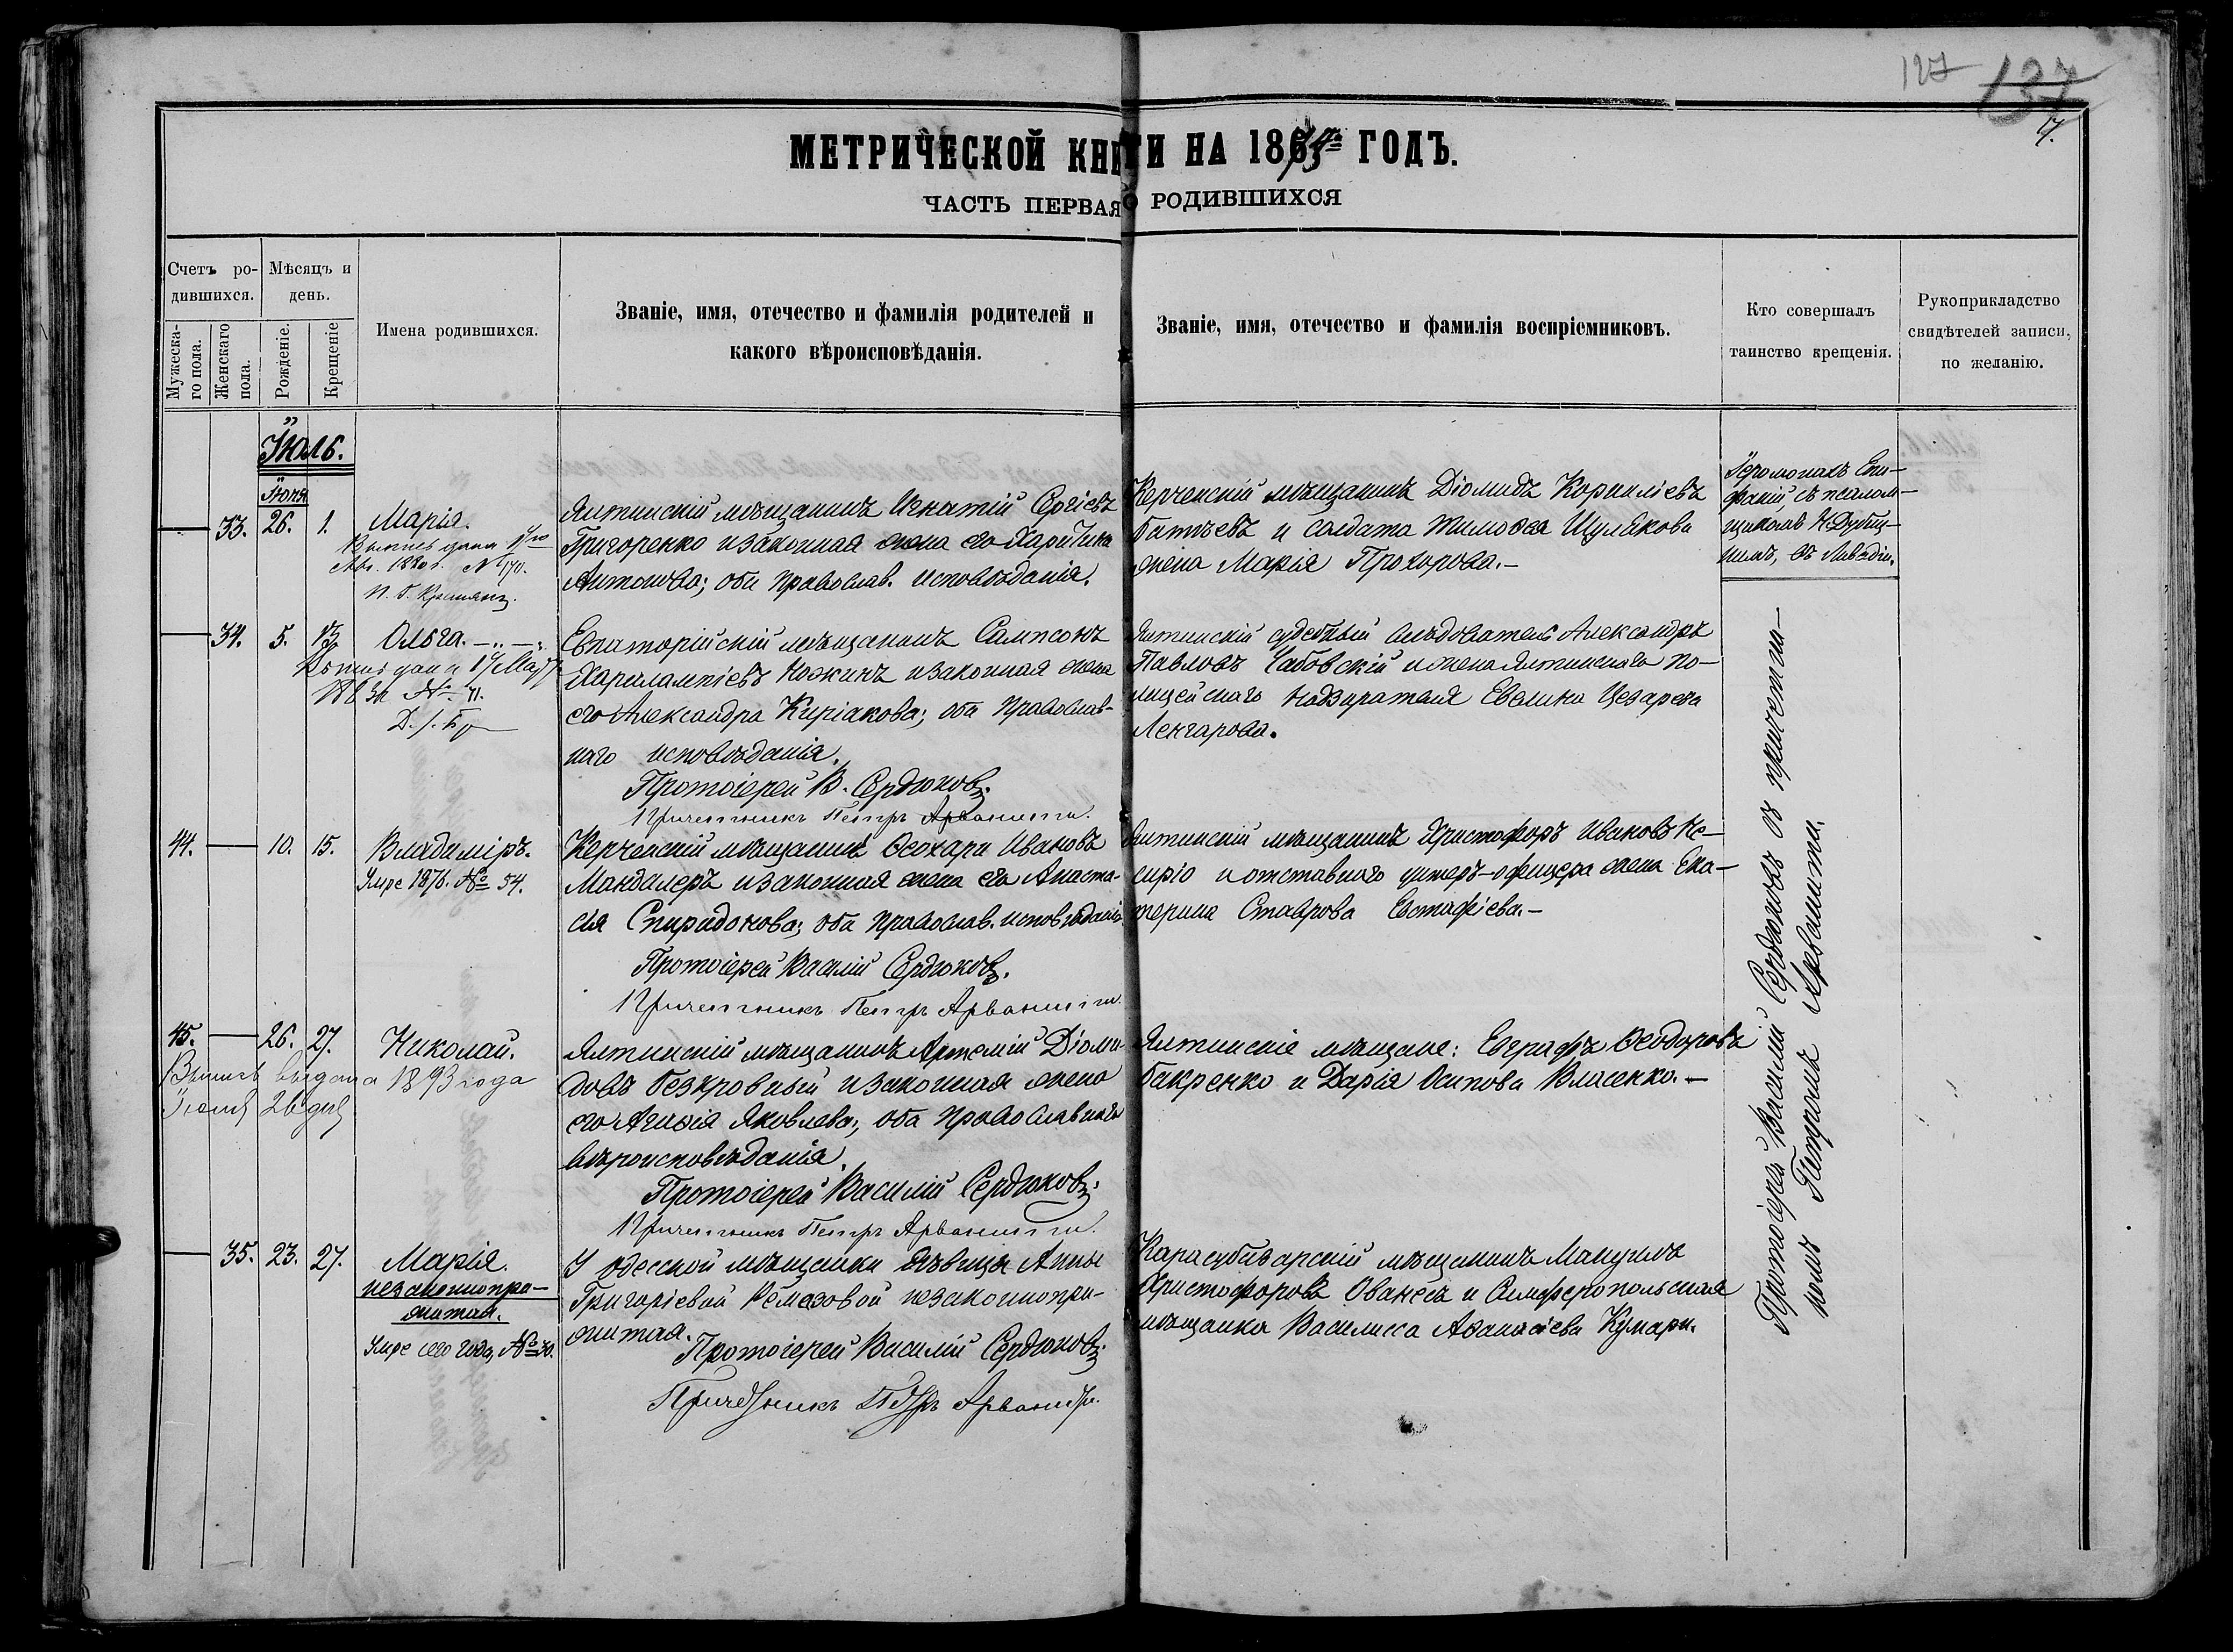 127 137
7.
МЕТРИЧЕСКОЙ КНИГИ НА 1875 го ГОДЪ.
ЧАСТЬ ПЕРВАЯ О РОДИВШИХСЯ
Счетъ ро-
дившихся.
Мужеска-
го пола.
Женскаго
пола.
Мѣсяцъ и
день.
Рожденіе.
Крещеніе
Имена родившихся.
Званіе, имя, отечество и фамилія родителей и
какого вѣроисповѣданія.
Званіе, имя, отечество и фамилія воспріемниковъ.
Кто совершалъ
таинство крещенія.
Рукоприкладство
свидѣтелей записи,
по желанію.
Іюль.
Іюня
33. 26. 1. Марія.
Авг. 1880 г. №
Ялтинскій мѣщанинъ Игнатій Сергіевъ
Григоренко и законная жена его Харитина
Антонова; оба православ. исповѣданія.
Керченскій мѣщанинъ Діомидъ Корниліевъ
и солдата Тимоѳея Шулякова
жена Марія Прохорова.
Іеромонахъ Епи-
фаній, съ псалом-
щикомъ
въ Ливадіи.
34. 5. 13. Ольга.
Евпаторійскій мѣщанинъ Сампсонъ
Харилампіевъ Ножинъ и законная жена
его Александра Киріакова; оба православ-
наго исповѣданія.
Протоіерей В. Сердюковъ.
Причетникъ Петръ Арванити.
Ялтинскій судебный слѣдователь Александръ
Павловъ Чабовскій и жена Ялтинскаго по-
лицейскаго надзирателя Евелина Цезарева
Ленгарова.
44. 10. 15. Владиміръ.
Умре 1876. № 54.
Керченскій мѣщанинъ Ѳеохари Ивановъ
Мандалеръ и законная жена его Анаста-
сія Спиридонова; оба православ. исповѣданія.
Протоіерей Василій Сердюковъ.
Причетникъ Петръ Арванити.
Ялтинскій мѣщанинъ Христофоръ Ивановъ Ке-
сиріо и отставнаго унтеръ-офицера жена Ека-
терина Ставрова Евстафіева.
45. 26. 27. Николай.
Выпись выдана 1893 года
Іюня 26 дня
Ялтинскій мѣщанинъ Артемій Діоми-
довъ Безкровный и законная жена
его Агнія Яковлева; оба православнаго
вѣроисповѣданія.
Протоіерей Василій Сердюковъ.
Причетникъ Петръ Арванити.
Ялтинскіе мѣщане: Евграфъ Ѳеодоровъ
Бакренко и Дарія Осипова Власенко.
35. 23. 27. Марія.
незаконнопри-
житая.
Умре сего года, № 30.
У одесской мѣщанки дѣвицы Анны
Григоріевой Ремезовой незаконнопри-
житая.
Протоіерей Василій Сердюковъ.
Причетникъ Петръ Арванити.
Карасубазарскій мѣщанинъ Мануилъ
Христофоровъ Ованесъ и Симферопольская
мѣщанка Василисса Аѳанасіева Кумари.
Протоіерей Василій Сердюковъ съ причетни-
комъ Петромъ Арванити.